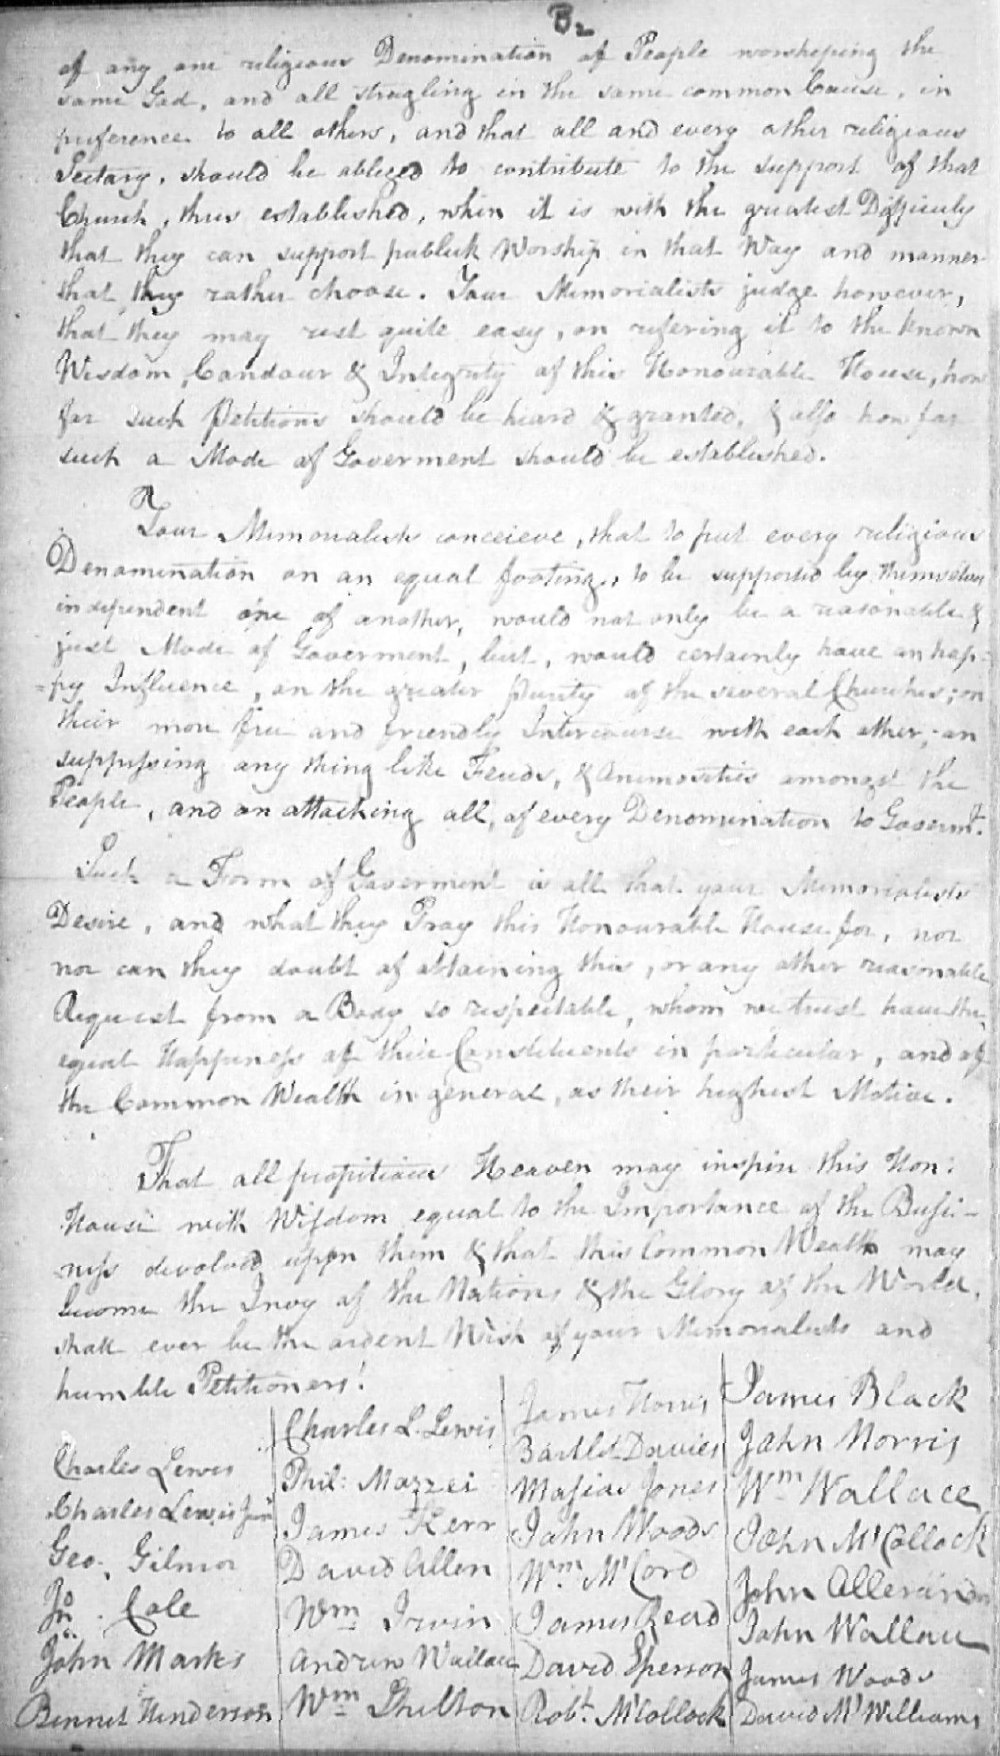 B2
of any one religious Denomination of People worsheping the
same God, and all strugling in the same common Cause, in
preference to all others, and that all and every other religious
Sectary, should be obleged to contribute to the support of that
Church, thus established, when it is with the greatest Difficuly
that they can support publick Worship in that Way and manner
that they rather choose. Your Memorialists judge however,
that they may rest quite easy, on refering it to the known
Wisdom, Candour & Integrity of this Honourable House, how
far such Petitions should be heard & granted, & also how far
such a Mode of Goverment should be established.
Your Memorialists conceieve, that to put every religious
Denomination on an equal footing, to be supported by themselves
independent one of another, would not only be a reasonable &
just Mode of Goverment, but, would certainly have an hap-
=py Influence, on the greater purity of the several Churches; on
their more free and friendly Intercourse with each other;- on
suppressing any thing like Feuds, & Animosities amongst the
People, and on attaching all, of every Denomination to Goverm.t
Such a Form of Goverment is all that your Memorialists
Desire, and what they Pray this Honourable House for, nor
nor can they doubt of attaining this, or any other reasonable
Request from a Body so respectable, whom we trust have the
equal Happiness of their Constituents in particular, and of
the Common Wealth in general, as their highest Motive.
That all propitious Heaven may inspire this Hon:
House with Wisdom equal to the Importance of the Busi-
-ness devolved upon them & that this Common Wealth may
become the Invy of the Nations & the Glory of the World,
shall ever be the ardent Wish of your Memorialists and
humble Petitioners!
Charles Lewis
Charles Lewis Junr
Geo. Gilmor
Jno. Cole
John Marks
Bennet Henderson
Charles L. Lewis
Phil: Mazzei
James Kerr
David Allen
Wm Irvin
Andrew Wallace
Wm Shelton
James Horris
Bartlet Davies
Masias Jones
John Woods
Wm. McCord
James Read
David Eperson
Robt. McCollock
James Black
John Morris
Wm Wallace
John McCollock
John Allexander
John Wallace
James Woods
David McWilliams